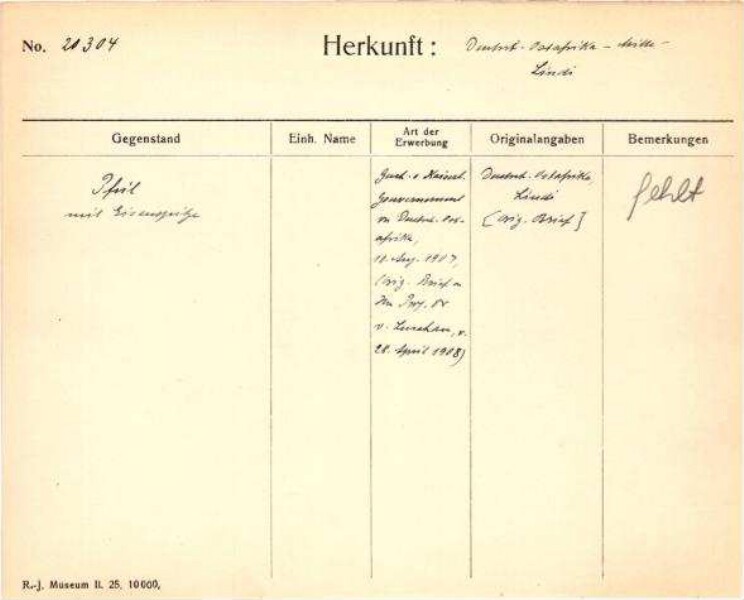 No. 20304
Herkunft: Deutsch-Ostafrika - Mitte -
Lindi
Gegenstand
Einh. Name
Art der
Erwerbung
Originalangaben
Bemerkungen
Pfeil
mit Eisenspitze
Gesch. v. Kaiserl.
Gouvernement
von Deutsch-Ost-
afrika,
1907,
(orig. Brief
Prof. Dr
v. Luschan, v.
28. April 1908)
Deutsch-Ostafrika,
Lindi
[orig. Brief]
fehlt
R.-J. Museum II. 25. 10000.